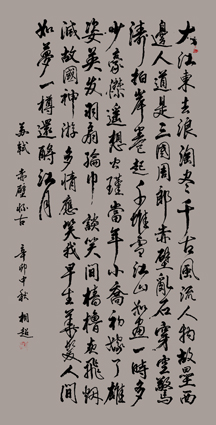 大江東去浪淘尽千古風流人物故壘西
邊人道是三國周郎赤壁亂石穿空驚
濤拍岸卷起千堆雪江山如画一時多
少豪傑遙想公瑾當年小喬初嫁了雄
姿英发羽扇綸巾談笑間檣櫓灰飛烟
滅故國神游多情應笑我早生華髮人間
如夢一樽還酹江月
蘇軾 赤壁懷古
辛卯中秋